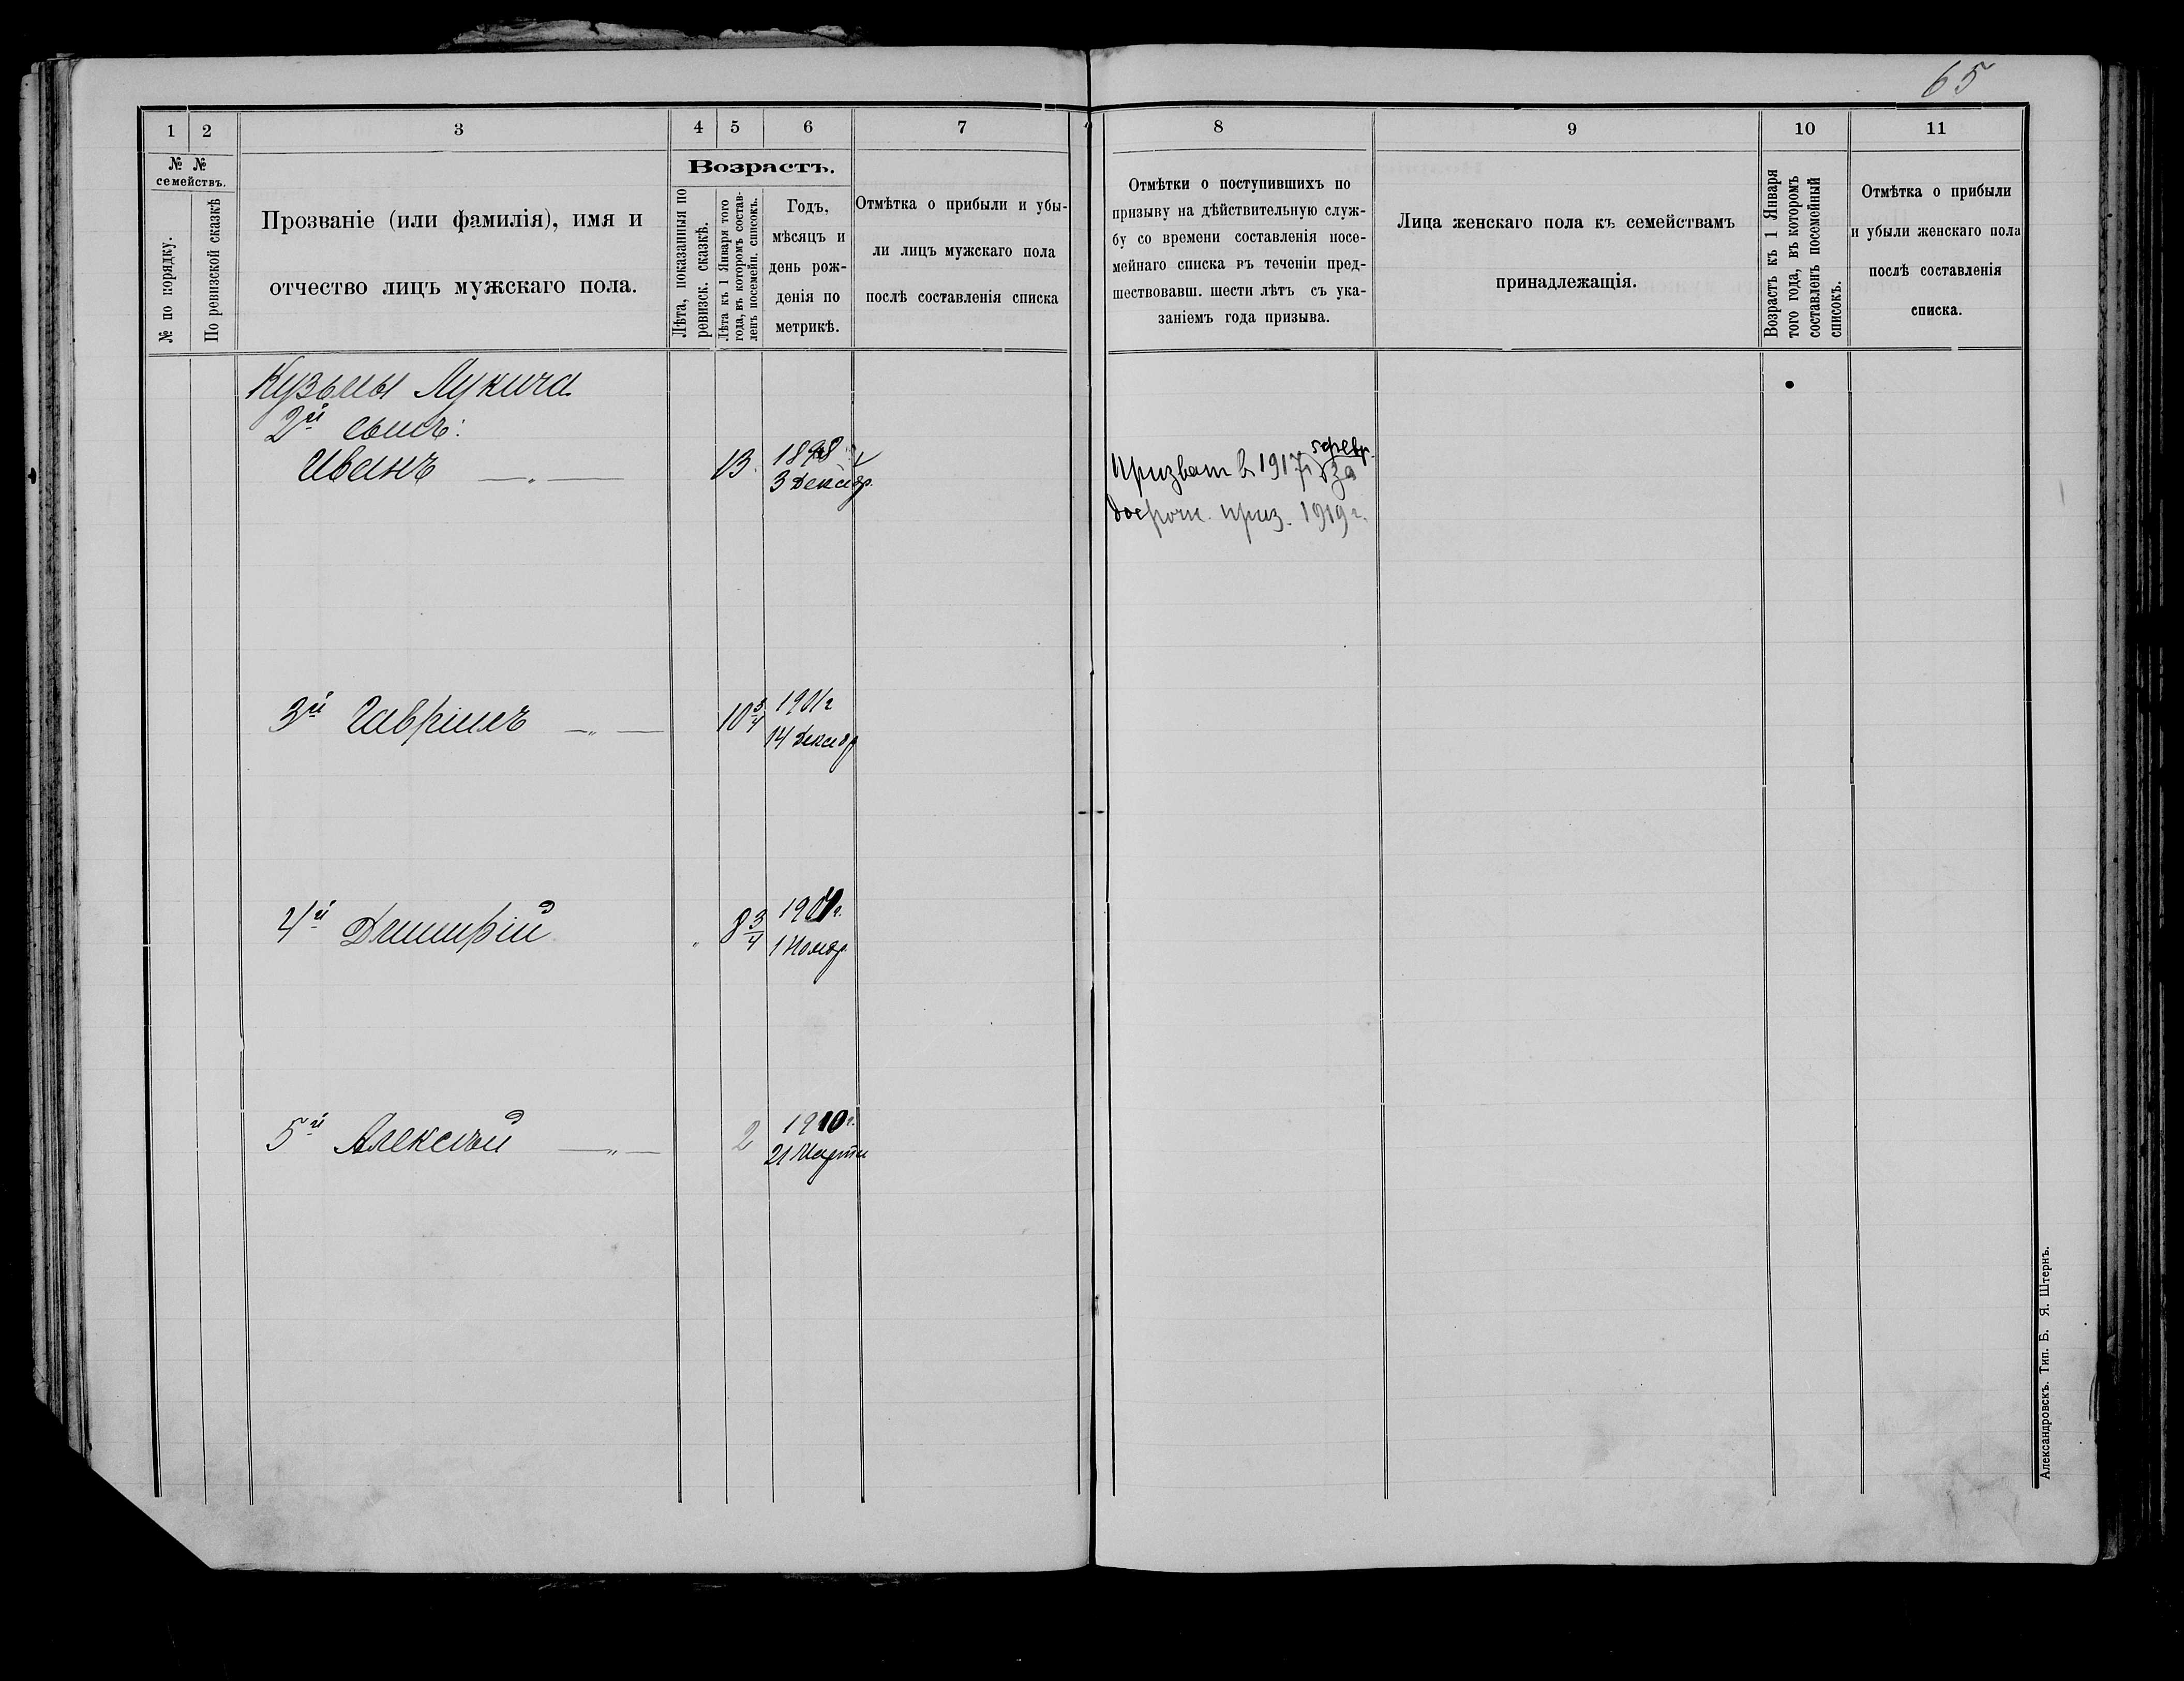 65
1 2 3 4 5 6 7 8 9 10 11
№ № семействъ.
№ по порядку.
По ревизской сказкѣ
Прозваніе (или фамилія), имя и
отчество лицъ мужскаго пола.
Возрастъ.
Лѣта, показанныя по
ревизск. сказкѣ.
Лѣта къ 1 Января того
года, въ которомъ состав-
ленъ посемейн. списокъ.
Годъ,
мѣсяцъ и
день рож-
денія по
метрикѣ.
Отмѣтка о прибыли и убы-
ли лицъ мужскаго пола
послѣ составленія списка
Отмѣтки о поступившихъ по
призыву на дѣйствительную служ-
бу со времени составленія посе-
мейнаго списка въ теченіи пред-
шествовавш. шести лѣтъ съ ука-
заніемъ года призыва.
Лица женскаго пола къ семействамъ
принадлежащія.
Возрастъ къ 1 Января
того года, въ которомъ
составленъ посемейный
списокъ.
Отмѣтка о прибыли
и убыли женскаго пола
послѣ составленія
списка.
Кузьмы Лукича
2й сынъ:
Иванъ — „ — 13 1898
3 Декабр.
Призван в 1917 г. 5 февр. за
досрочн. приз. 1919 г.
3й Гавріилъ — „ — 10 3/4 1901 г
14 Декабр
4й Димитрій 8 3/4
1 Ноябр.
5й Алексѣй — „ — 2 1910 г.
21 Марта
Александровскъ. Тип. Б. Я. Штернъ.